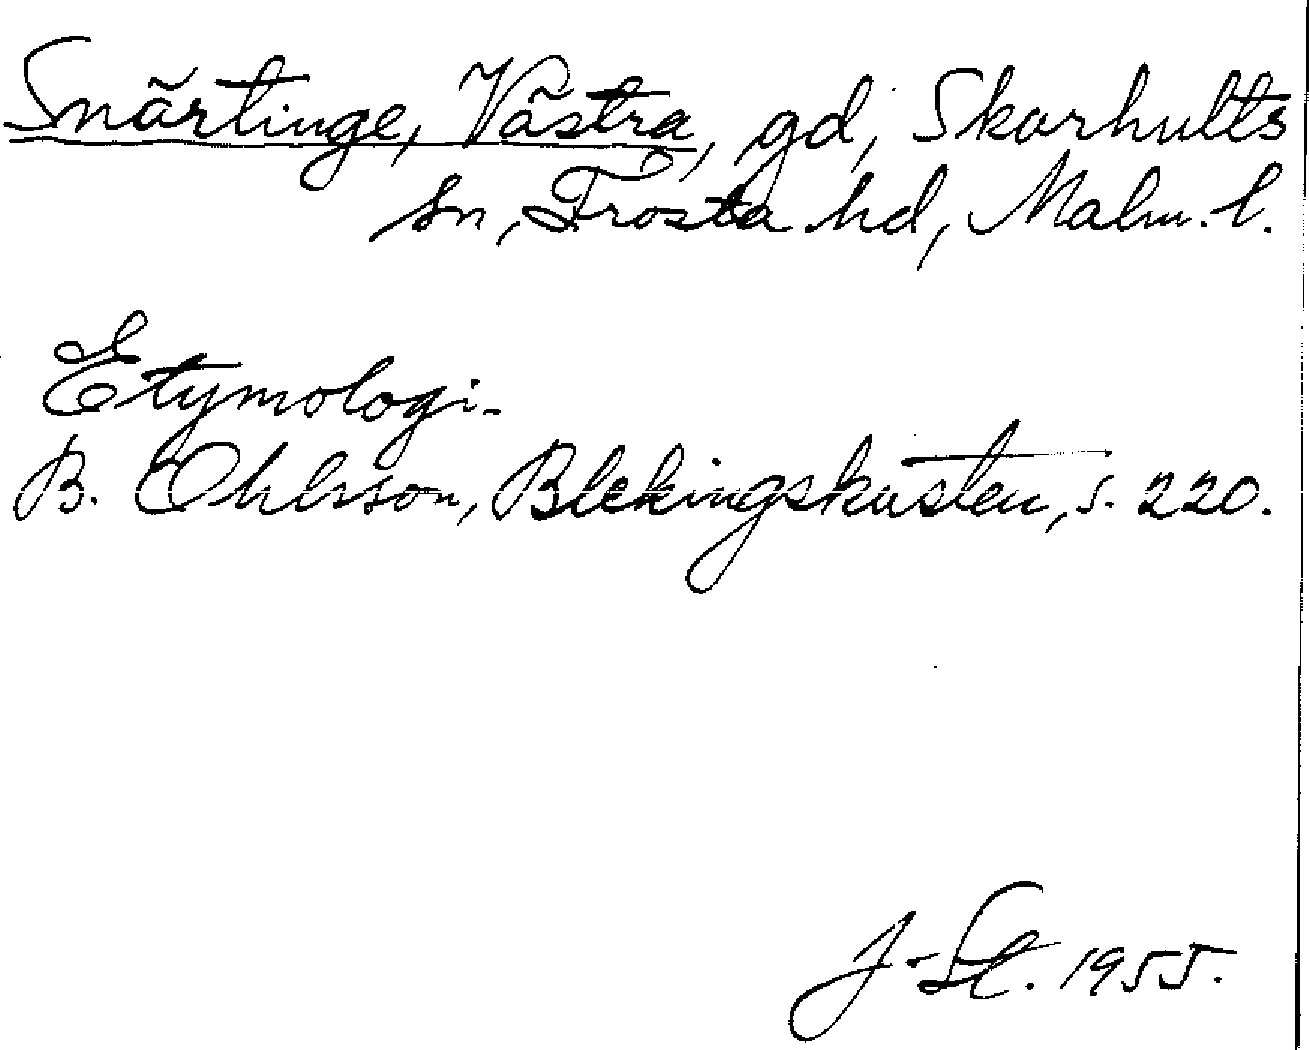 Snärtinge, Västra, gd, Skarhults
sn, Frosta hd, Malm. l.
Etymologi.
B. Ohlsson, Blekingskusten, s. 220.
J-St. 1955.